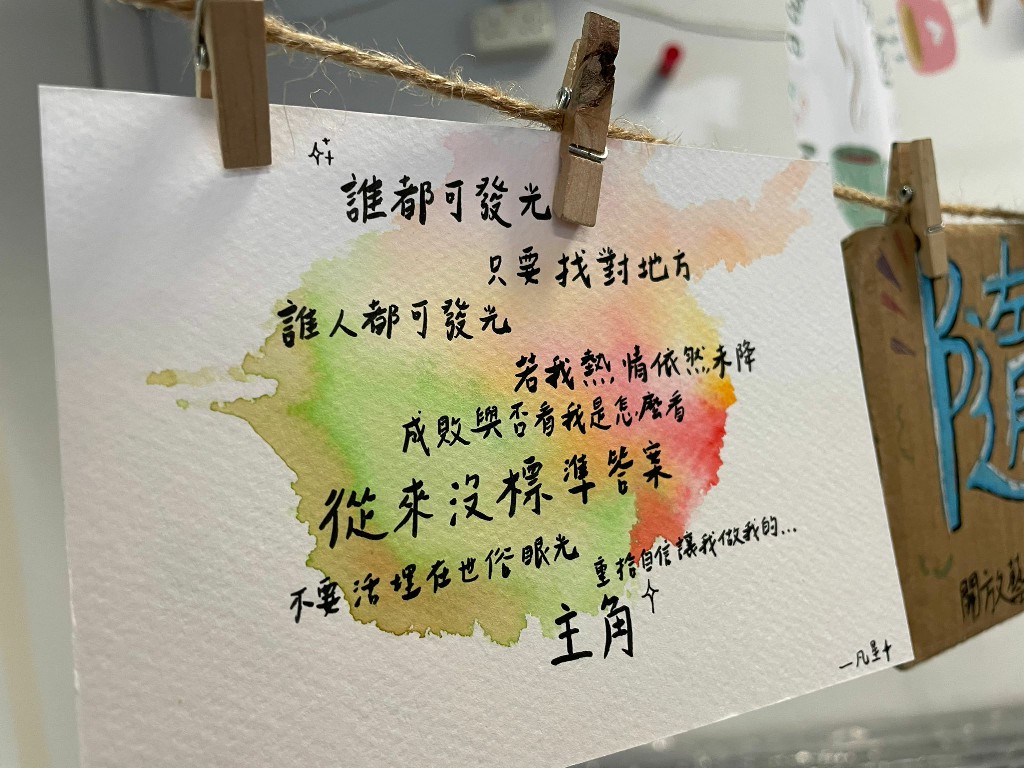 誰都可發光
只要找對地方
誰人都可發光
若我熱情依然未降
成敗與否看我是怎麼看
從來沒標準答案
不要活埋在世俗眼光
重拾自信讓我做我的...
主角
—凡星
隨
開放藝